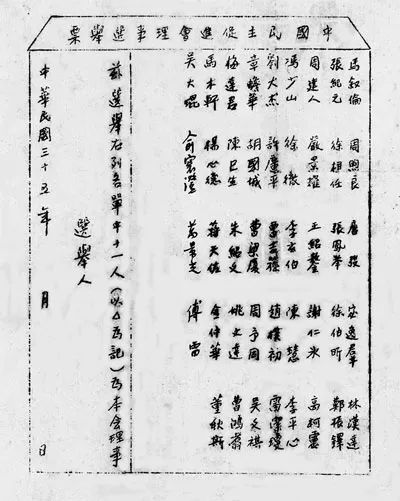 中國民主促進會理事選舉票
馬叙倫 周煦良 唐弢 宓逸羣 林漢達
張紀元 徐相任 張鳳舉 徐伯昕 鄭振鐸
周建人 嚴景耀 王紹鏊 謝仁冰
馮少山 徐徹 李玄伯 陳慧 李平心
劉大杰 許廣平 趙樸初 雷潔瓊
章蟾華 胡國城 曹梁厦 周予同 吳文祺
梅達君 陳巳生 朱紹文 曹鴻翥
馬木軒 楊心德 蔣天佐 金仲華 董秋斯
吳大琨 俞寰澄 萬景光 傅雷
茲選舉右列名單中十一人(以△為記)為本会理事
選舉人
中華民國三十五年 月 日